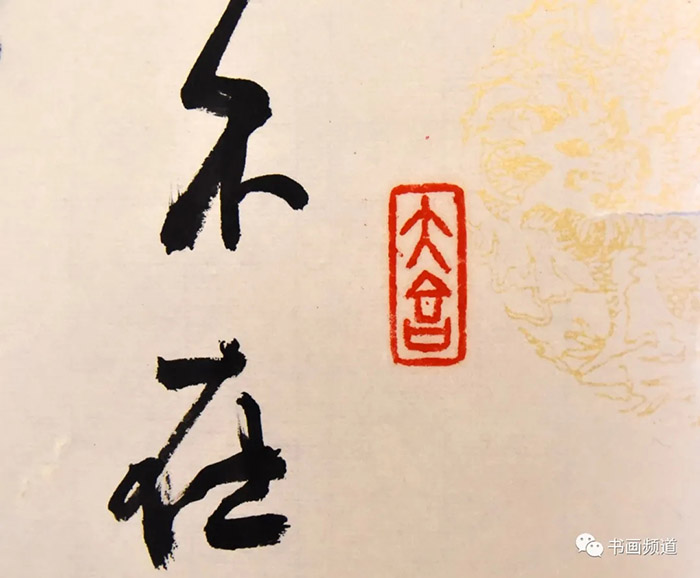 不在
大吉
书画频道